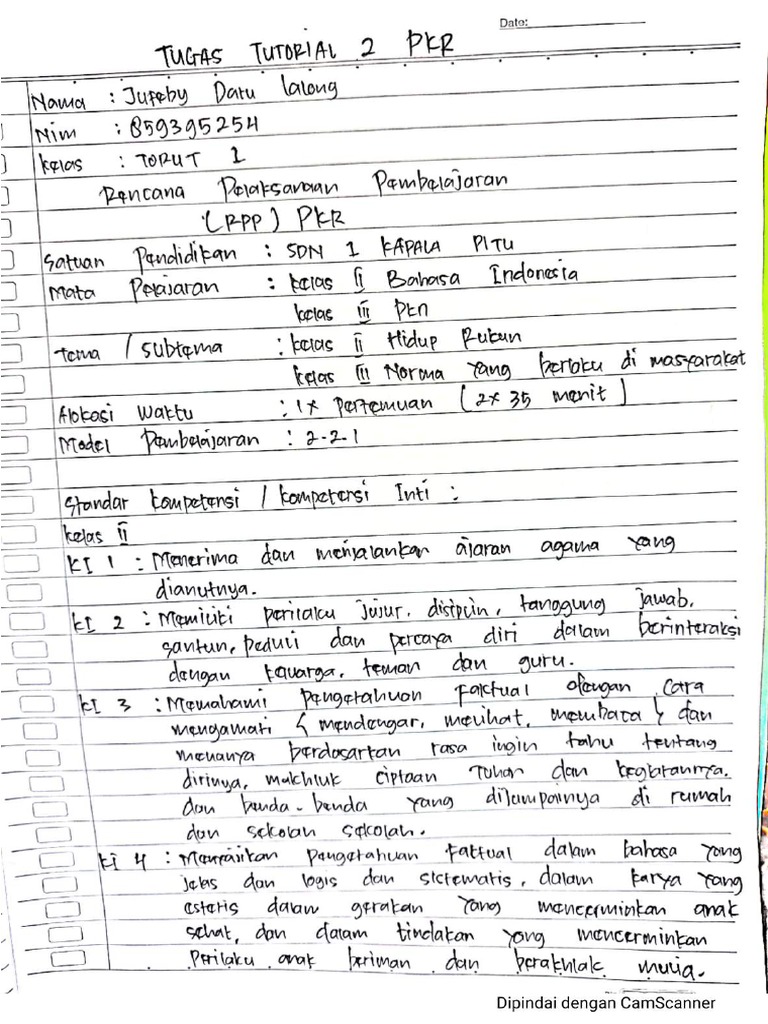 Date:
TUGAS TUTORIAL 2 PKR
Nama : Jufeby Daru lalong
Nim : 859395254
kelas : TORUT 1
Rencana Pelaksanaan Pembelajaran
(RPP) PKR
Satuan Pendidikan : SDN 1 KAPALA PITU
Mata Pelajaran : kelas II Bahasa Indonesia
kelas III Pkn
Tema / Subtema : kelas II Hidup Rukun
kelas III Norma yang berlaku di masyarakat
Alokasi Waktu : 1x Pertemuan (2x 35 menit)
Model Pembelajaran : 2-2-1
Standar kompetensi / kompetensi Inti :
kelas II
KI 1 : Menerima dan menjalankan ajaran agama yang
dianutnya.
KI 2 : Memiliki perilaku jujur, disiplin, tanggung jawab,
santun, peduli dan percaya diri dalam berinteraksi
dengan keluarga, teman dan guru.
KI 3 : Memahami pengetahuan faktual dengan cara
mengamati { mendengar, melihat, membaca } dan
menanya berdasarkan rasa ingin tahu tentang
dirinya, makhluk ciptaan Tuhan dan kegiatannya.
dan benda-benda yang dijumpainya di rumah
dan sekolah sekolah.
KI 4 : Menyajikan pengetahuan faktual dalam bahasa yang
jelas dan logis dan sistematis, dalam karya yang
estetis dalam gerakan yang mencerminkan anak
sehat, dan dalam tindakan yang mencerminkan
Perilaku anak beriman dan berakhlak mulia.
Dipindai dengan CamScanner